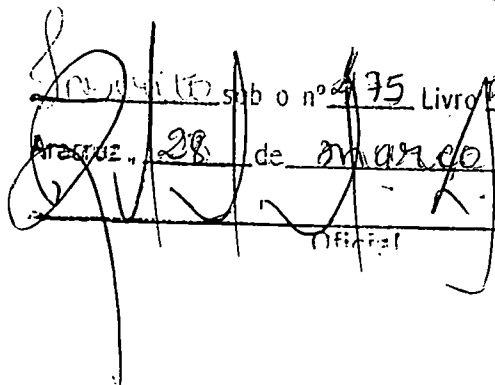 Inscrito sub o nº 475 Livro
Aracruz, 28 de março
Oficial